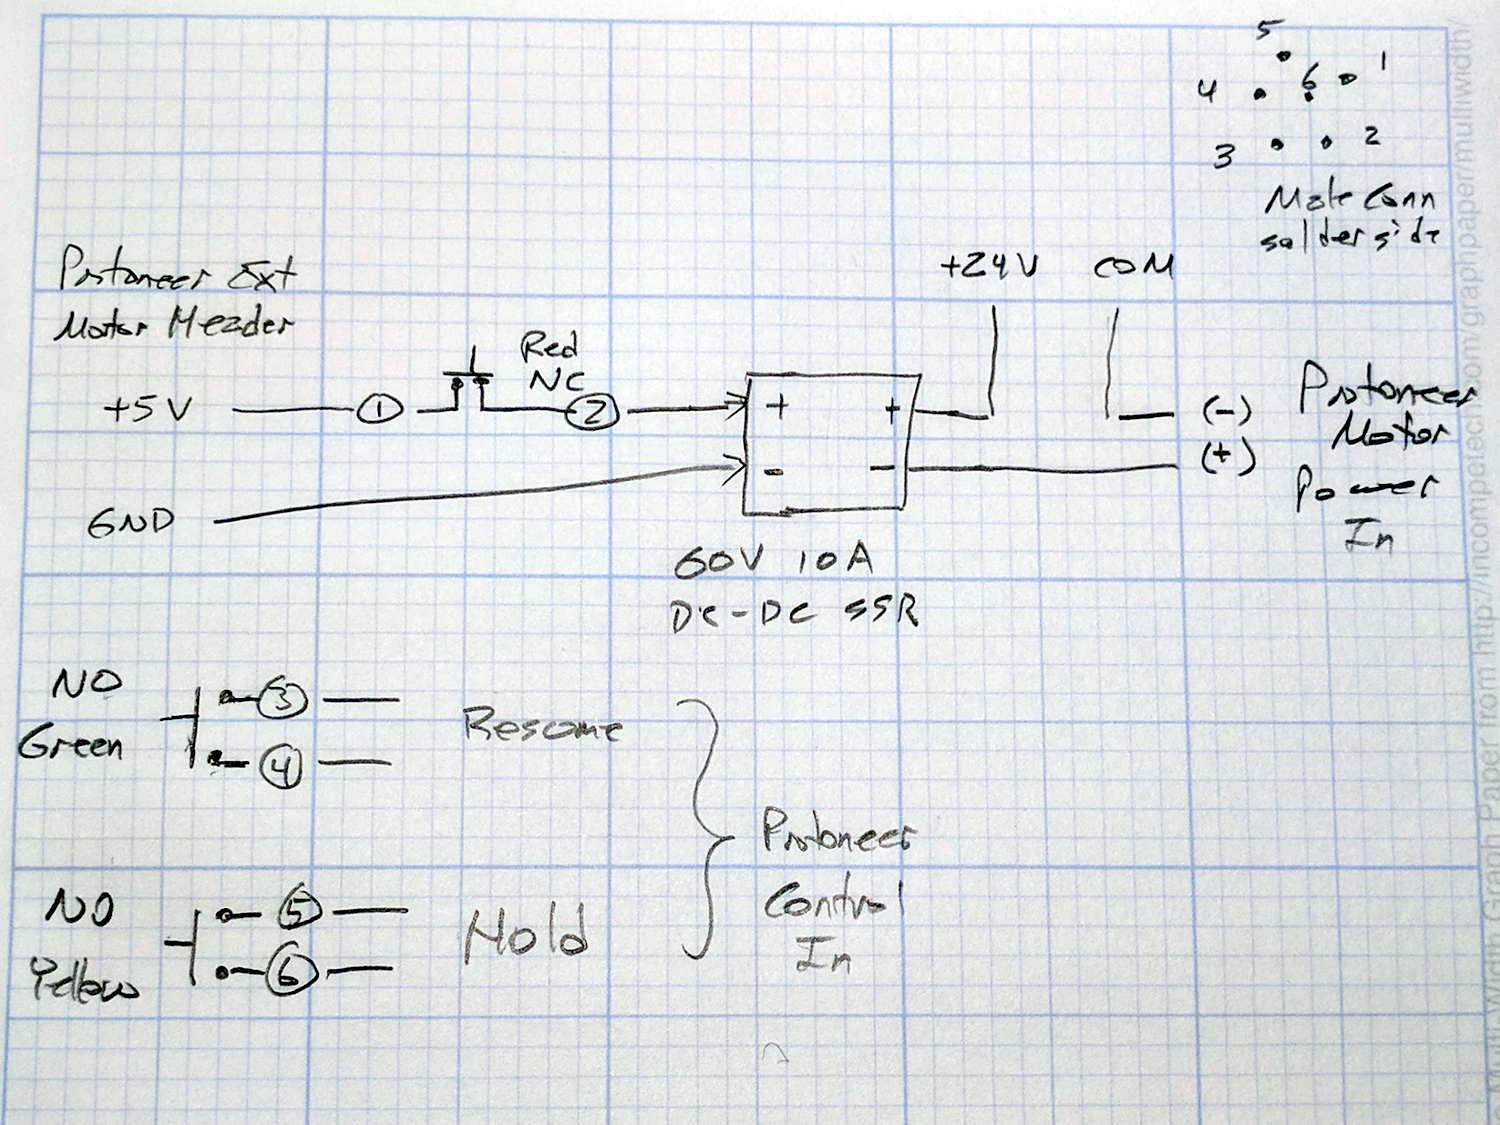 5
1
4
6
3
2
Male Conn
solder side
Protoneer Ext
Motor Header
+24V COM
Red
NC
+5V 1 2 + + (-)
- - (+)
GND
Protoneer
Motor
Power
In
60V 10A
DC-DC SSR
NO
Green
3
4
Resume
NO
Yellow
5
6
Hold
Protoneer
Control
In
Multi-Width Graph Paper from http://incompetech.com/graphpaper/multiwidth/